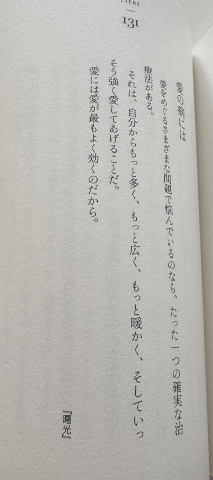 131
愛の病には
愛をめぐるさまざまな問題で悩んでいるのなら、たった一つの確実な治
療法がある。
それは、自分からもっと多く、もっと広く、もっと暖かく、そしていっ
そう強く愛してあげることだ。
愛には愛が最もよく効くのだから。
『曙光』